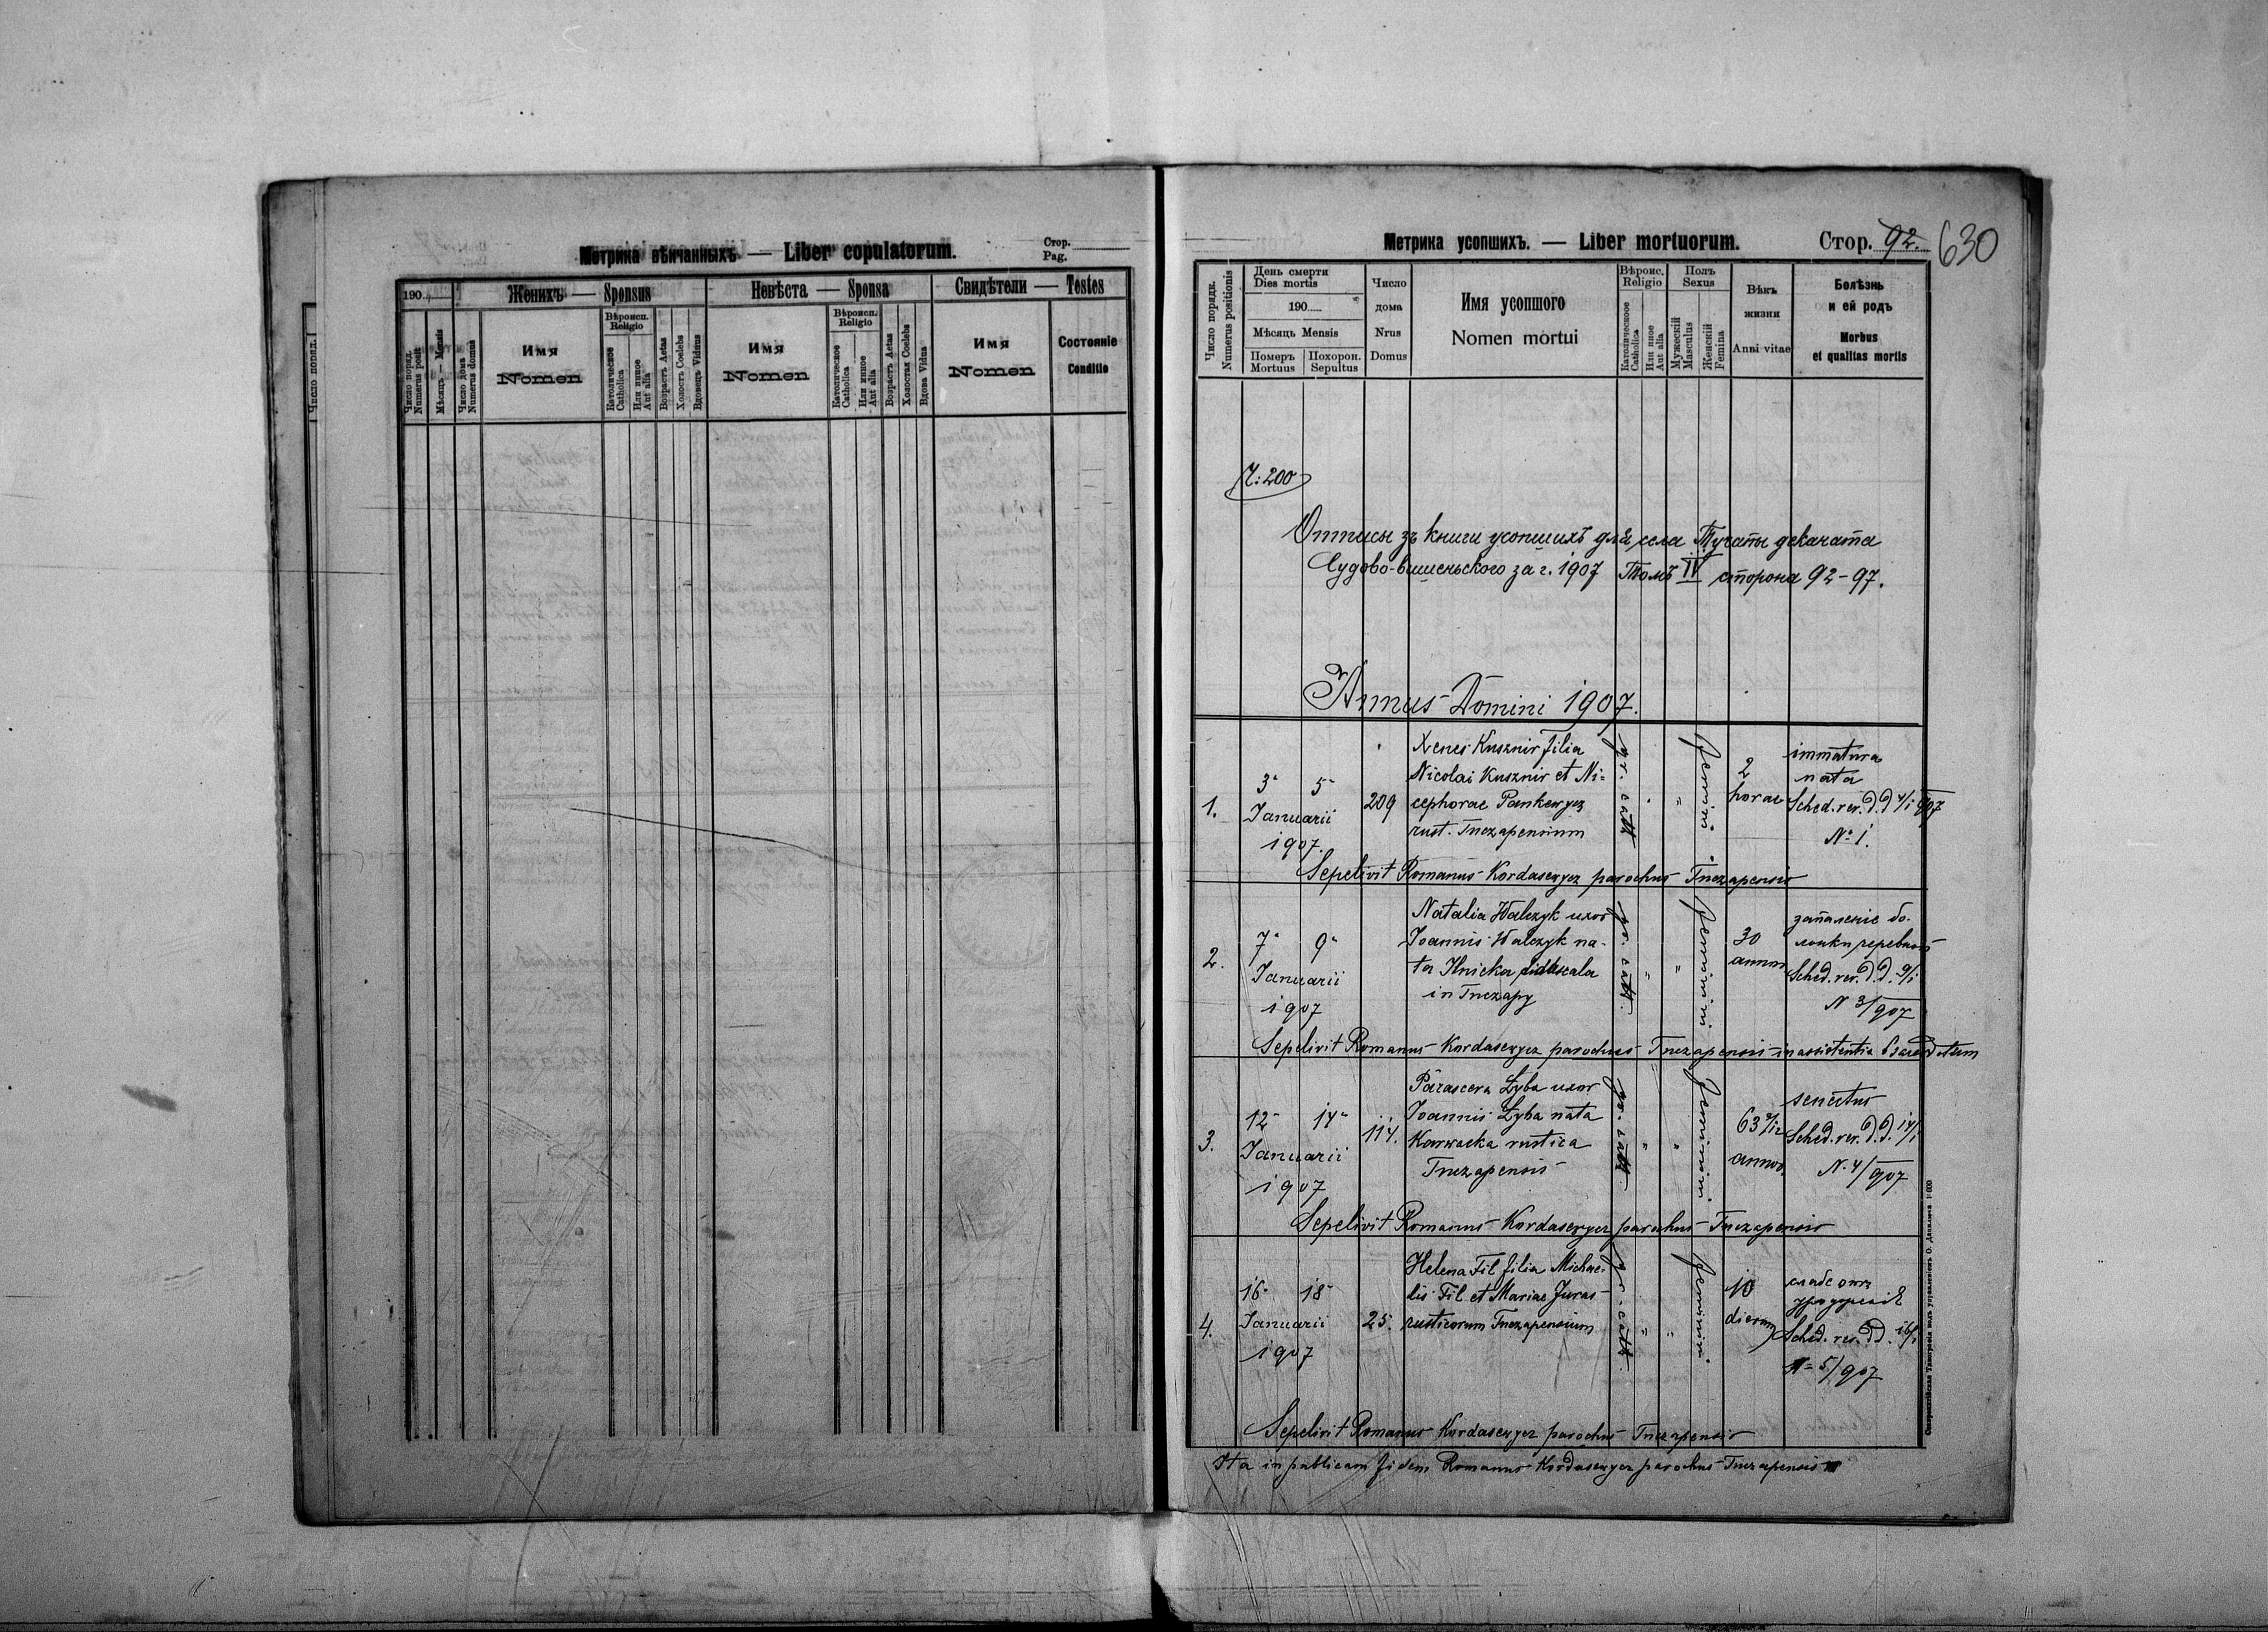 Метрика вѣнчанныхъ — Liber copulatorum.
Стор.
Pag.
190
Женихъ — Sponsus
Невѣста — Sponsa
Свидѣтели — Testes
Число поряд.
Numerus posit
Мѣсяцъ — Mensis
Число дома
Numerus domus
Имя
Nomen
Вѣроисп.
Religio
Католическое
Catholica
Или иное
Aut alia
Возрастъ Aetas
Холостъ Coelebs
Вдовецъ Viduus
Имя
Nomen
Вѣроисп.
Religio
Католическое
Catholica
Или иное
Aut alia
Возрастъ Aetas
Холостая Coelebs
Вдова Vidua
Имя
Nomen
Состояніе
Conditio
Число поряд.
Метрика усопшихъ. — Liber mortuorum.
Стор. 92.
630
Число порядк.
Numerus positionis
День смерти
Dies mortis
190
Мѣсяцъ Mensis
Померъ
Mortuus
Похорон.
Sepultus
Число
дома
Nrus
Domus
Имя усопшого
Nomen mortui
Вѣроис.
Religio
Католическое
Catholica
Или иное
Aut alia
Полъ
Sexus
Мужескій
Masculus
Женскій
Femina
Вѣкъ
жизни
Anni vitae
Болѣзнь
и ей родъ
Morbus
et qualitas mortis
Ч: 200
Отписы зъ книги усопшихъ для села Тучапы деканата
Судово-вишеньского за г. 1907 Томъ IV сторона 92-97.
Annus Domini 1907.
1.
3 5
Januarii
1907.
209
Xenes Kusznir filia
Nicolai Kusznir et Ni=
cephorae Pankewycz
rust. Tuczapensium
gr. cath
feminini
2
horae
immatura
nata
Sched. rev. d.d 4/1 907
No 1.
Sepelivit Romanus Kordasewycz parochus Tuczapensis
2.
7 9
Januarii
1907
Natalia Walczyk uxor
Joannis Walczyk na-
ta Ilnicka didascala
in Tuczapy
gr. cath.
feminini
30
annor
запаленіе бо-
лонки черевной
Sched. rev. d.d. 9/1
N 3/907
Sepelivit Romanus Kordasewycz parochus Tuczapensis in assistentia 6 sacerdotum
3.
12 14
Januarii
1907
114.
Parasceva Zyba uxor
Joannis Zyba nata
Karwacka rustica
Tuczapensis
gr. cath.
feminini
63
annor
senectus
Sched. rev. d.d. 14/1
N. 4/907
Sepelivit Romanus Kordasewycz parochus Tuczapensis
4.
16 18
Januarii
1907
25.
Helena Fil filia Michae-
lis Fil et Mariae Juras
rusticorum Tuczapensium
gr. cath.
feminini
10
dierum
слабе отъ
уродженія
Sched. rev. dd. 16/1
N= 5/907
Sepelivit Romanus Kordasewycz parochus Tuczapensis
Ita in publicam fidem Romanus Kordasewycz parochus Tuczapensis